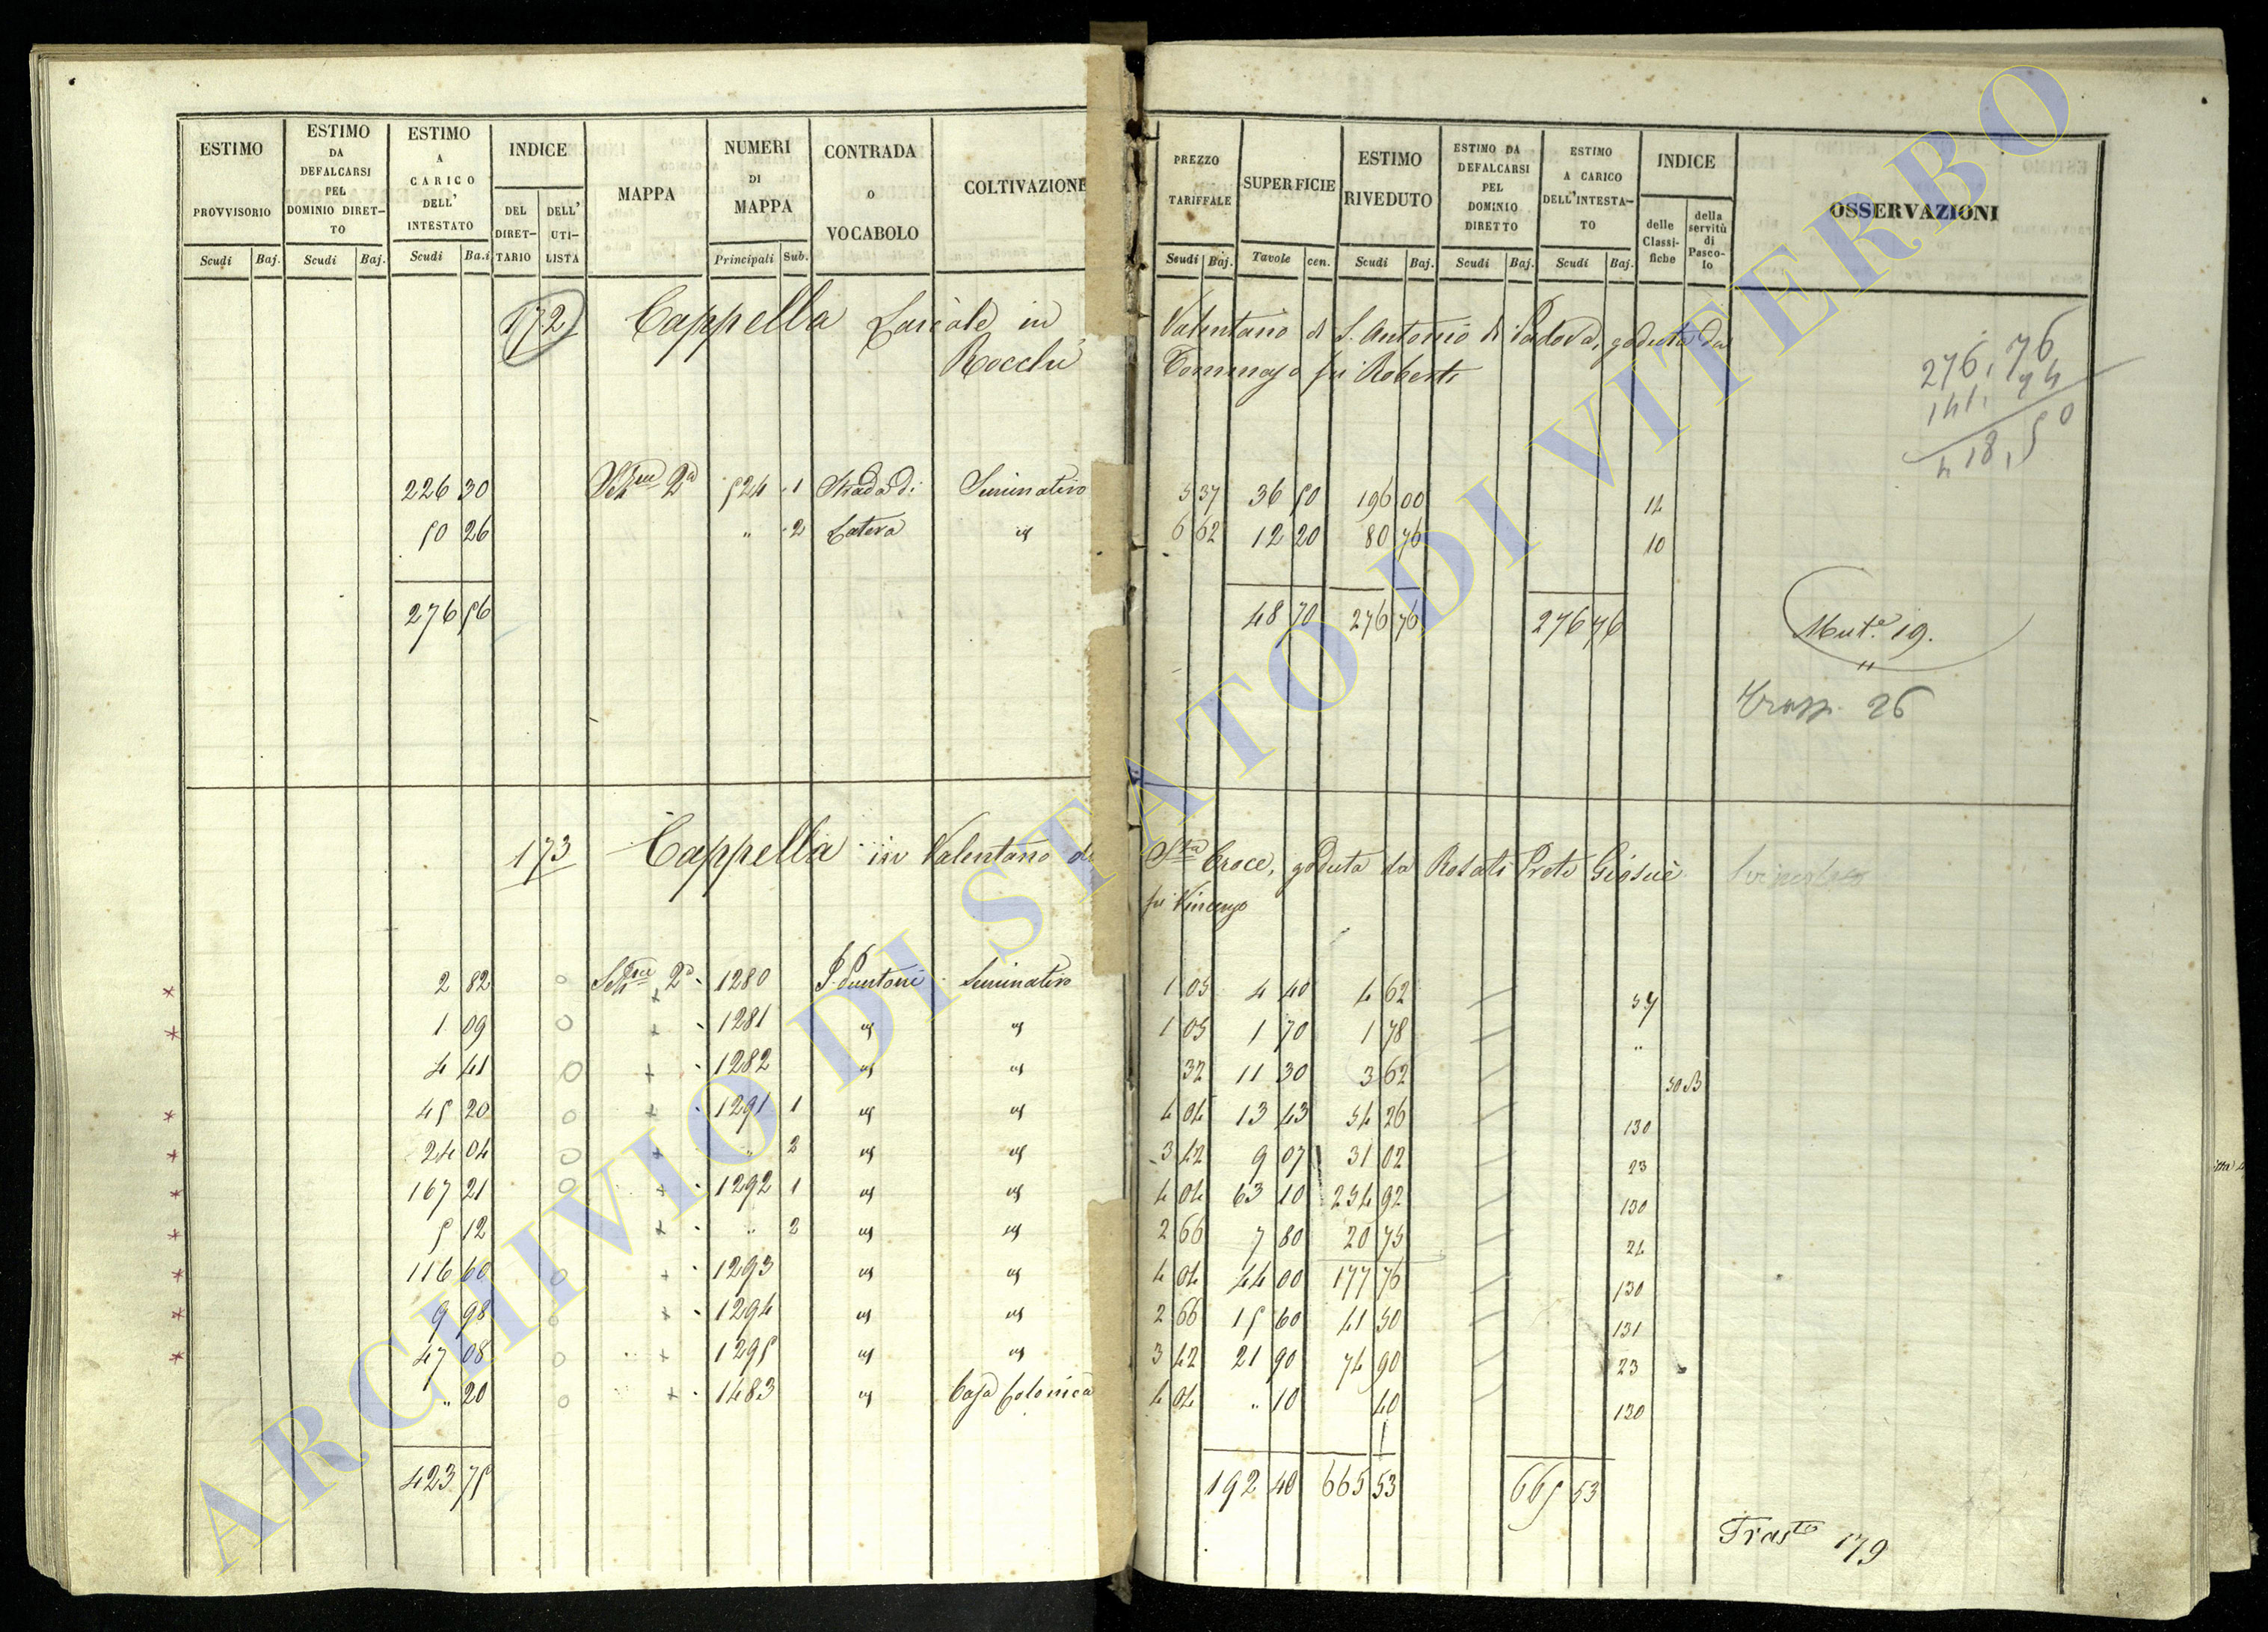 ESTIMO PROVVISORIO | ESTIMO DA DEFALCARSI PEL DOMINIO DIRETTO | ESTIMO A CARICO DELL' INTESTATO | INDICE | MAPPA | NUMERI DI MAPPA | CONTRADA O VOCABOLO | COLTIVAZIONE | PREZZO TARIFFALE | SUPERFICIE | ESTIMO RIVEDUTO | ESTIMO DA DEFALCARSI PEL DOMINIO DIRETTO | ESTIMO A CARICO DELL'INTESTATO | INDICE | OSSERVAZIONI
Scudi | Baj. | Scudi | Baj. | Scudi | Baj. | DEL DIRETTARIO | DELL' UTILISTA | Principali | Sub. | Scudi | Baj. | Tavole | cen. | Scudi | Baj. | Scudi | Baj. | Scudi | Baj. | delle Classifiche | della servitù di Pascolo
172 Cappella Laicale in Valentano di S. Antonio di Padova, goduta da
Rocchi Tommaso fu Roberto
276,76
141,74
418,50
226 30 Sezne 2a 524 1 Strada di Seminativo 5 37 36 50 196 00 14
50 26 " 2 Latera id 6 62 12 20 80 76 10
276 56 48 70 276 76 276 76
Mut.e 19.
Trasp. 26
173 Cappella in Valentano di Sta Croce, goduta da Rosati Prete Giosuè
fu Vincenzo
2 82 Sezne 2a 1280 P. Puntoni Seminativo 1 05 4 40 4 62
1 09 1281 id id 1 05 1 70 1 78 "
4 41 1282 id id 32 11 30 3 62 50 B
45 20 1291 1 id id 4 04 13 43 54 26 130
24 04 " 2 id id 3 42 9 07 31 02 23
167 21 1292 1 id id 4 04 63 10 254 92 130
5 12 " 2 id id 2 66 7 80 20 75 24
116 60 1293 id id 4 04 44 00 177 76 130
9 98 1294 id id 2 66 15 60 41 50 131
47 08 1295 id id 3 42 21 90 74 90 23
" 20 1483 id Casa Colonica 4 04 " 10 40 130
423 75 192 40 665 53 665 53
Trasto 179
ARCHIVIO DI STATO DI VITERBO